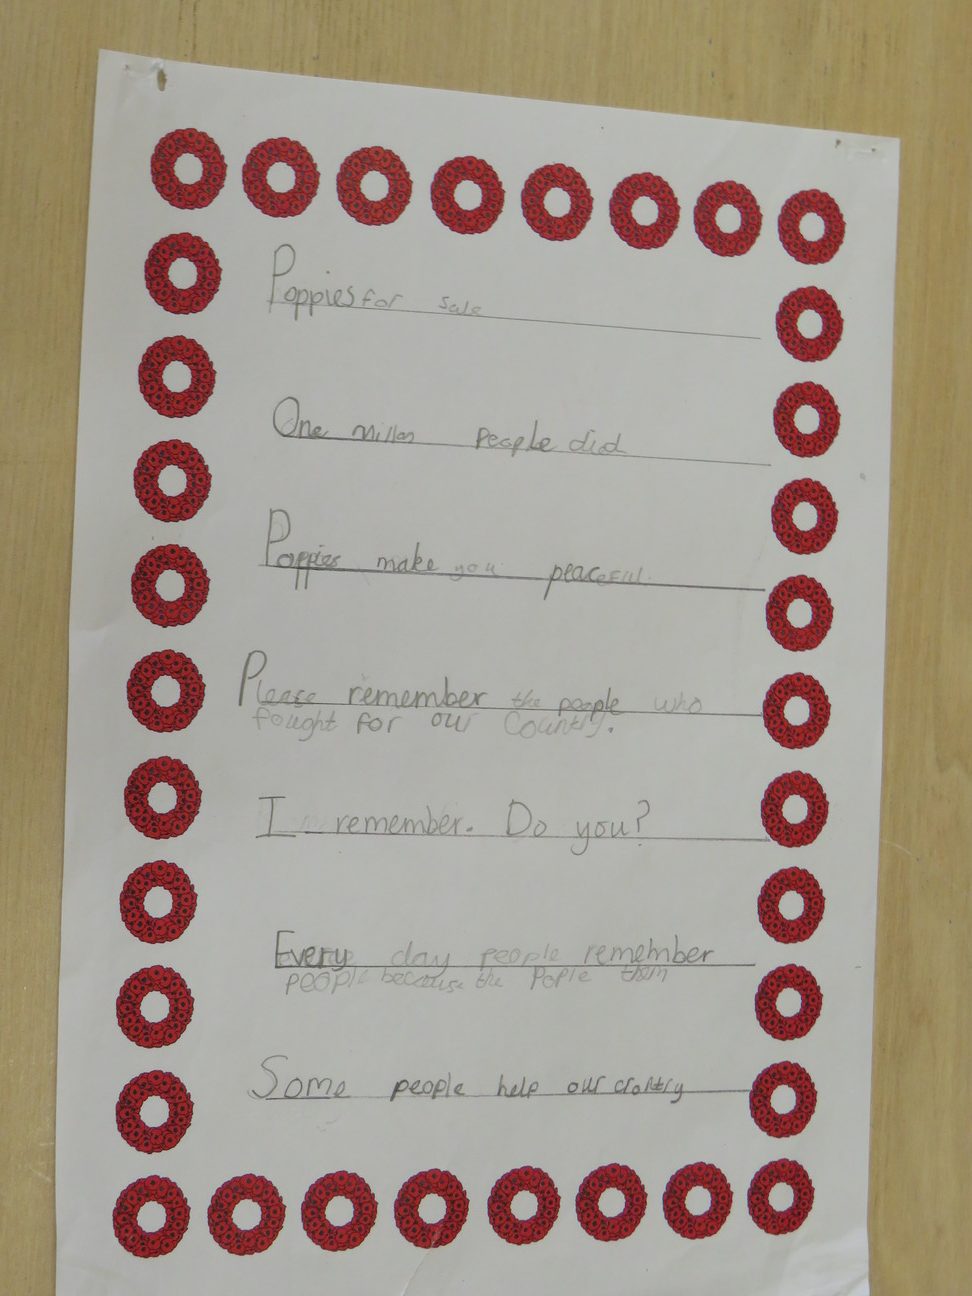 Poppies for sale
One Millon people did
Poppies make you peaceful.
Please remember the people who
fought for our Country.
I remember. Do you?
Every day people remember
people because the Pople them
Some people help our crontry